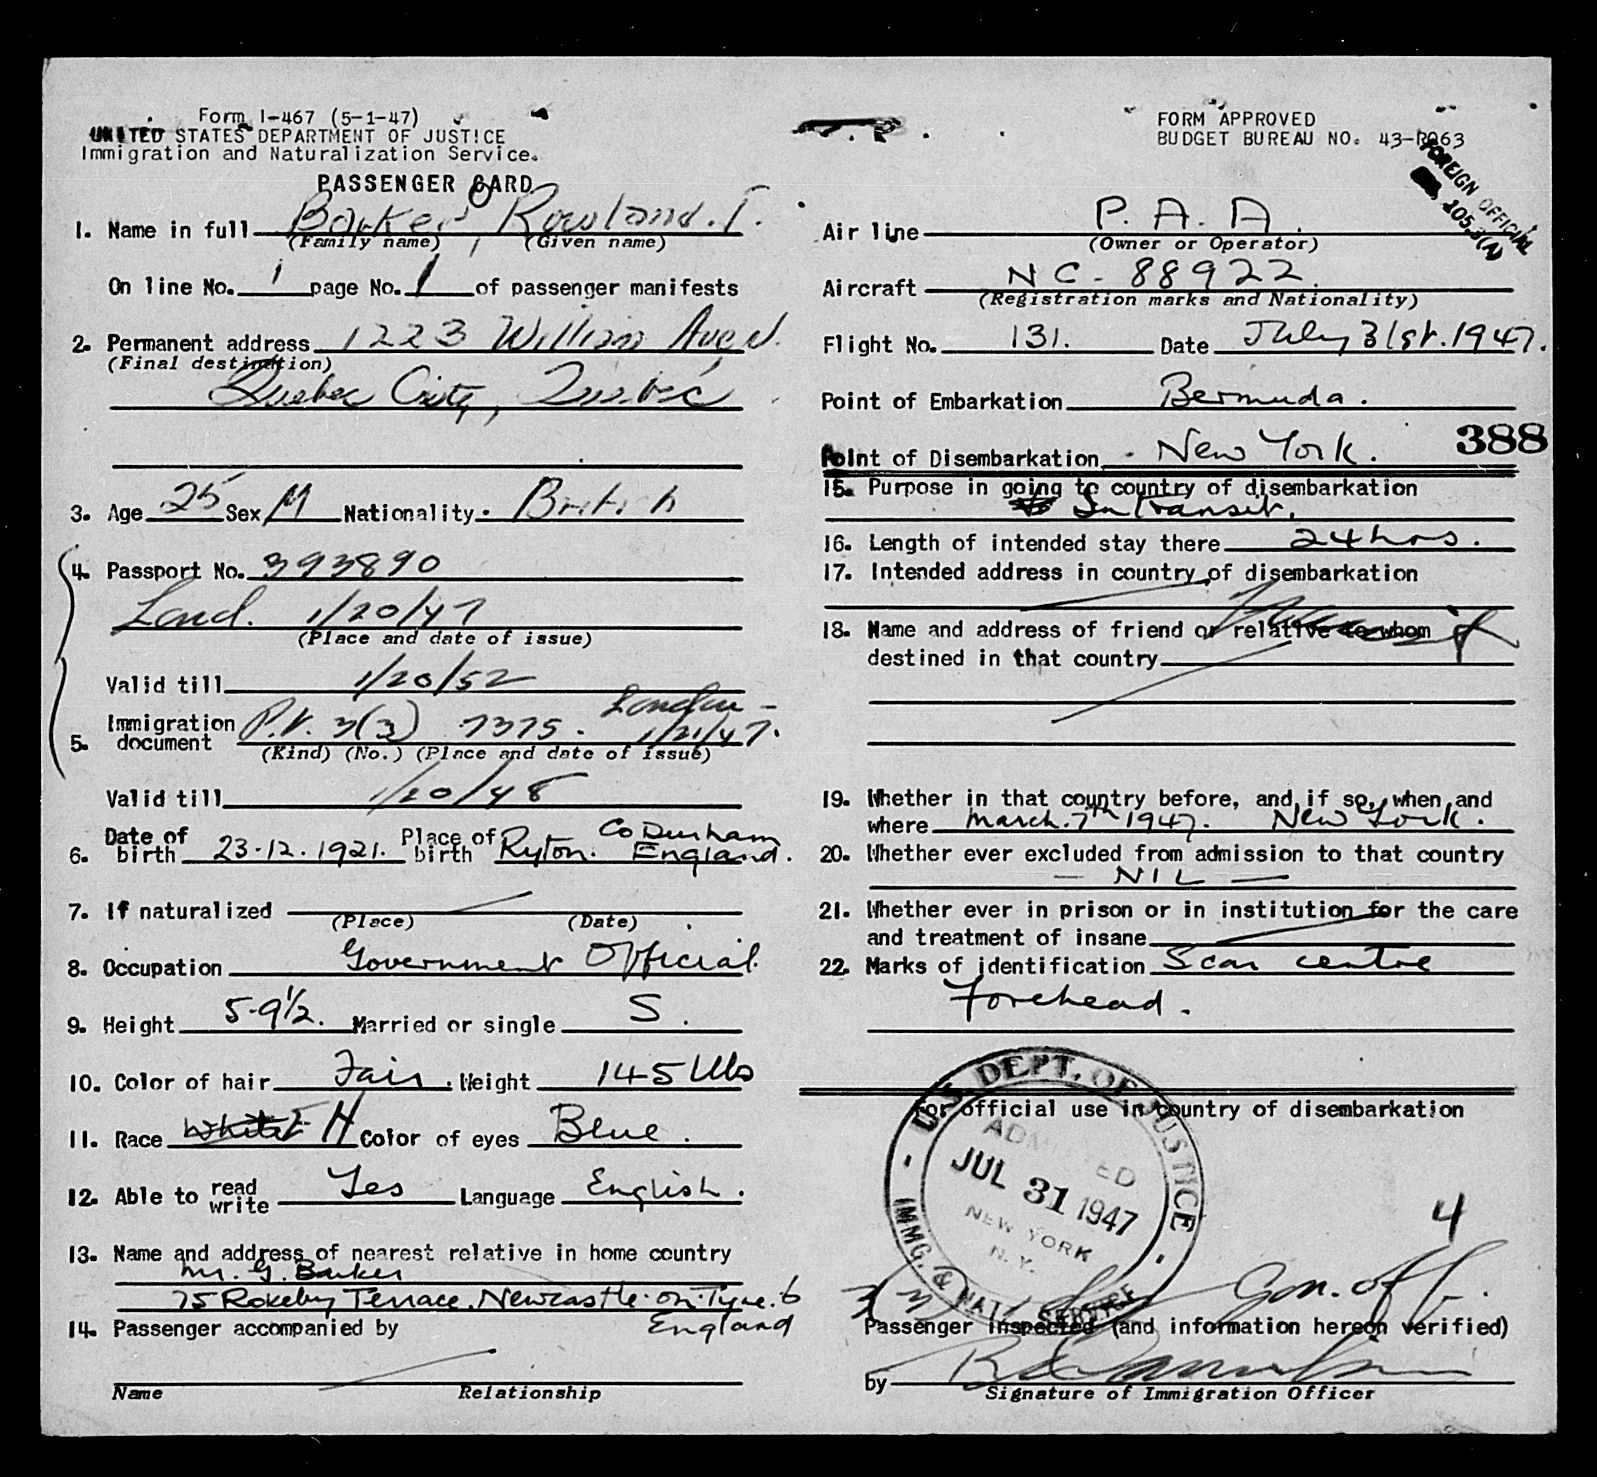 Form I-467 (5-1-47)
UNITED STATES DEPARTMENT OF JUSTICE
Immigration and Naturalization Service.
PASSENGER CARD
FORM APPROVED
BUDGET BUREAU NO. 43-R063
FOREIGN OFFICIAL
105.3(A)
1. Name in full Barker, Rowland. T.
(Family name) (Given name)
On line No. 1 page No. 1 of passenger manifests
2. Permanent address 1223 William Ave
(Final destination)
Quebec City, Quebec
3. Age 25 Sex M Nationality British
4. Passport No. 393890
Lond. 1/20/47
(Place and date of issue)
Valid till 1/20/52
5. Immigration document P.V. 3(3) 7375. London - 1/21/47.
(Kind) (No.) (Place and date of issue)
Valid till 1/20/48
6. Date of birth 23.12.1921. Place of birth Ryton. Co Durham England.
7. If naturalized
(Place) (Date)
8. Occupation Government Official.
9. Height 5-9 1/2. Married or single S.
10. Color of hair Fair. Weight 145 lbs
11. Race White H Color of eyes Blue.
12. Able to read write Yes Language English.
13. Name and address of nearest relative in home country
Mr. G. Barker
75 Rokeby Terrace. Newcastle-on-Tyne. 6
England
14. Passenger accompanied by
Name Relationship
Air line P. A. A.
(Owner or Operator)
Aircraft NC-88922.
(Registration marks and Nationality)
Flight No. 131. Date July 31st. 1947.
Point of Embarkation Bermuda.
Point of Disembarkation New York.
388
15. Purpose in going to country of disembarkation
In transit.
16. Length of intended stay there 24 hrs.
17. Intended address in country of disembarkation
18. Name and address of friend or relative to whom
destined in that country
19. Whether in that country before, and if so, when and
where March. 7th 1947. New York.
20. Whether ever excluded from admission to that country
— NIL —
21. Whether ever in prison or in institution for the care
and treatment of insane
22. Marks of identification Scar centre
Forehead.
For official use in country of disembarkation
U.S. DEPT. OF JUSTICE
ADMITTED
JUL 31 1947
NEW YORK
N.Y.
IMMG. & NATZ. SERVICE
4
3 3 Gov. off.
Passenger inspected (and information hereon verified)
by
Signature of Immigration Officer